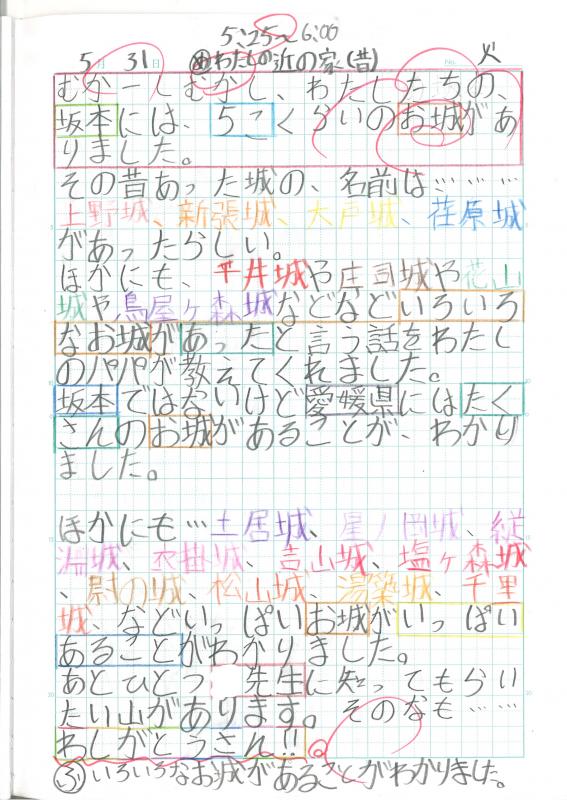 5:25〜6:00
5月31日 めわたしの近の家(昔) 火
むかーしむかし、わたしたちの、
坂本には、5こくらいのお城があ
りました。
その昔あった城の、名前は……
上野城、新張城、大戸城、荏原城
があったらしい。
ほかにも、平井城や庄司城や花山
城や鳥屋ヶ森城などなどいろいろ
なお城があったと言う話をわたし
のパパが教えてくれました。
坂本ではないけど愛媛県にはたく
さんのお城があることが、わかり
ました。
ほかにも…土居城、星ノ岡城、縦
淵城、衣掛城、吉山城、塩ヶ森城
、尉の城、松山城、湯築城、千里
城、などいっぱいお城がいっぱい
あることがわかりました。
あとひとつ 先生に知ってもらい
たい山があります。そのなも……
わしがとうさん!!
ふいろいろなお城があることがわかりました。